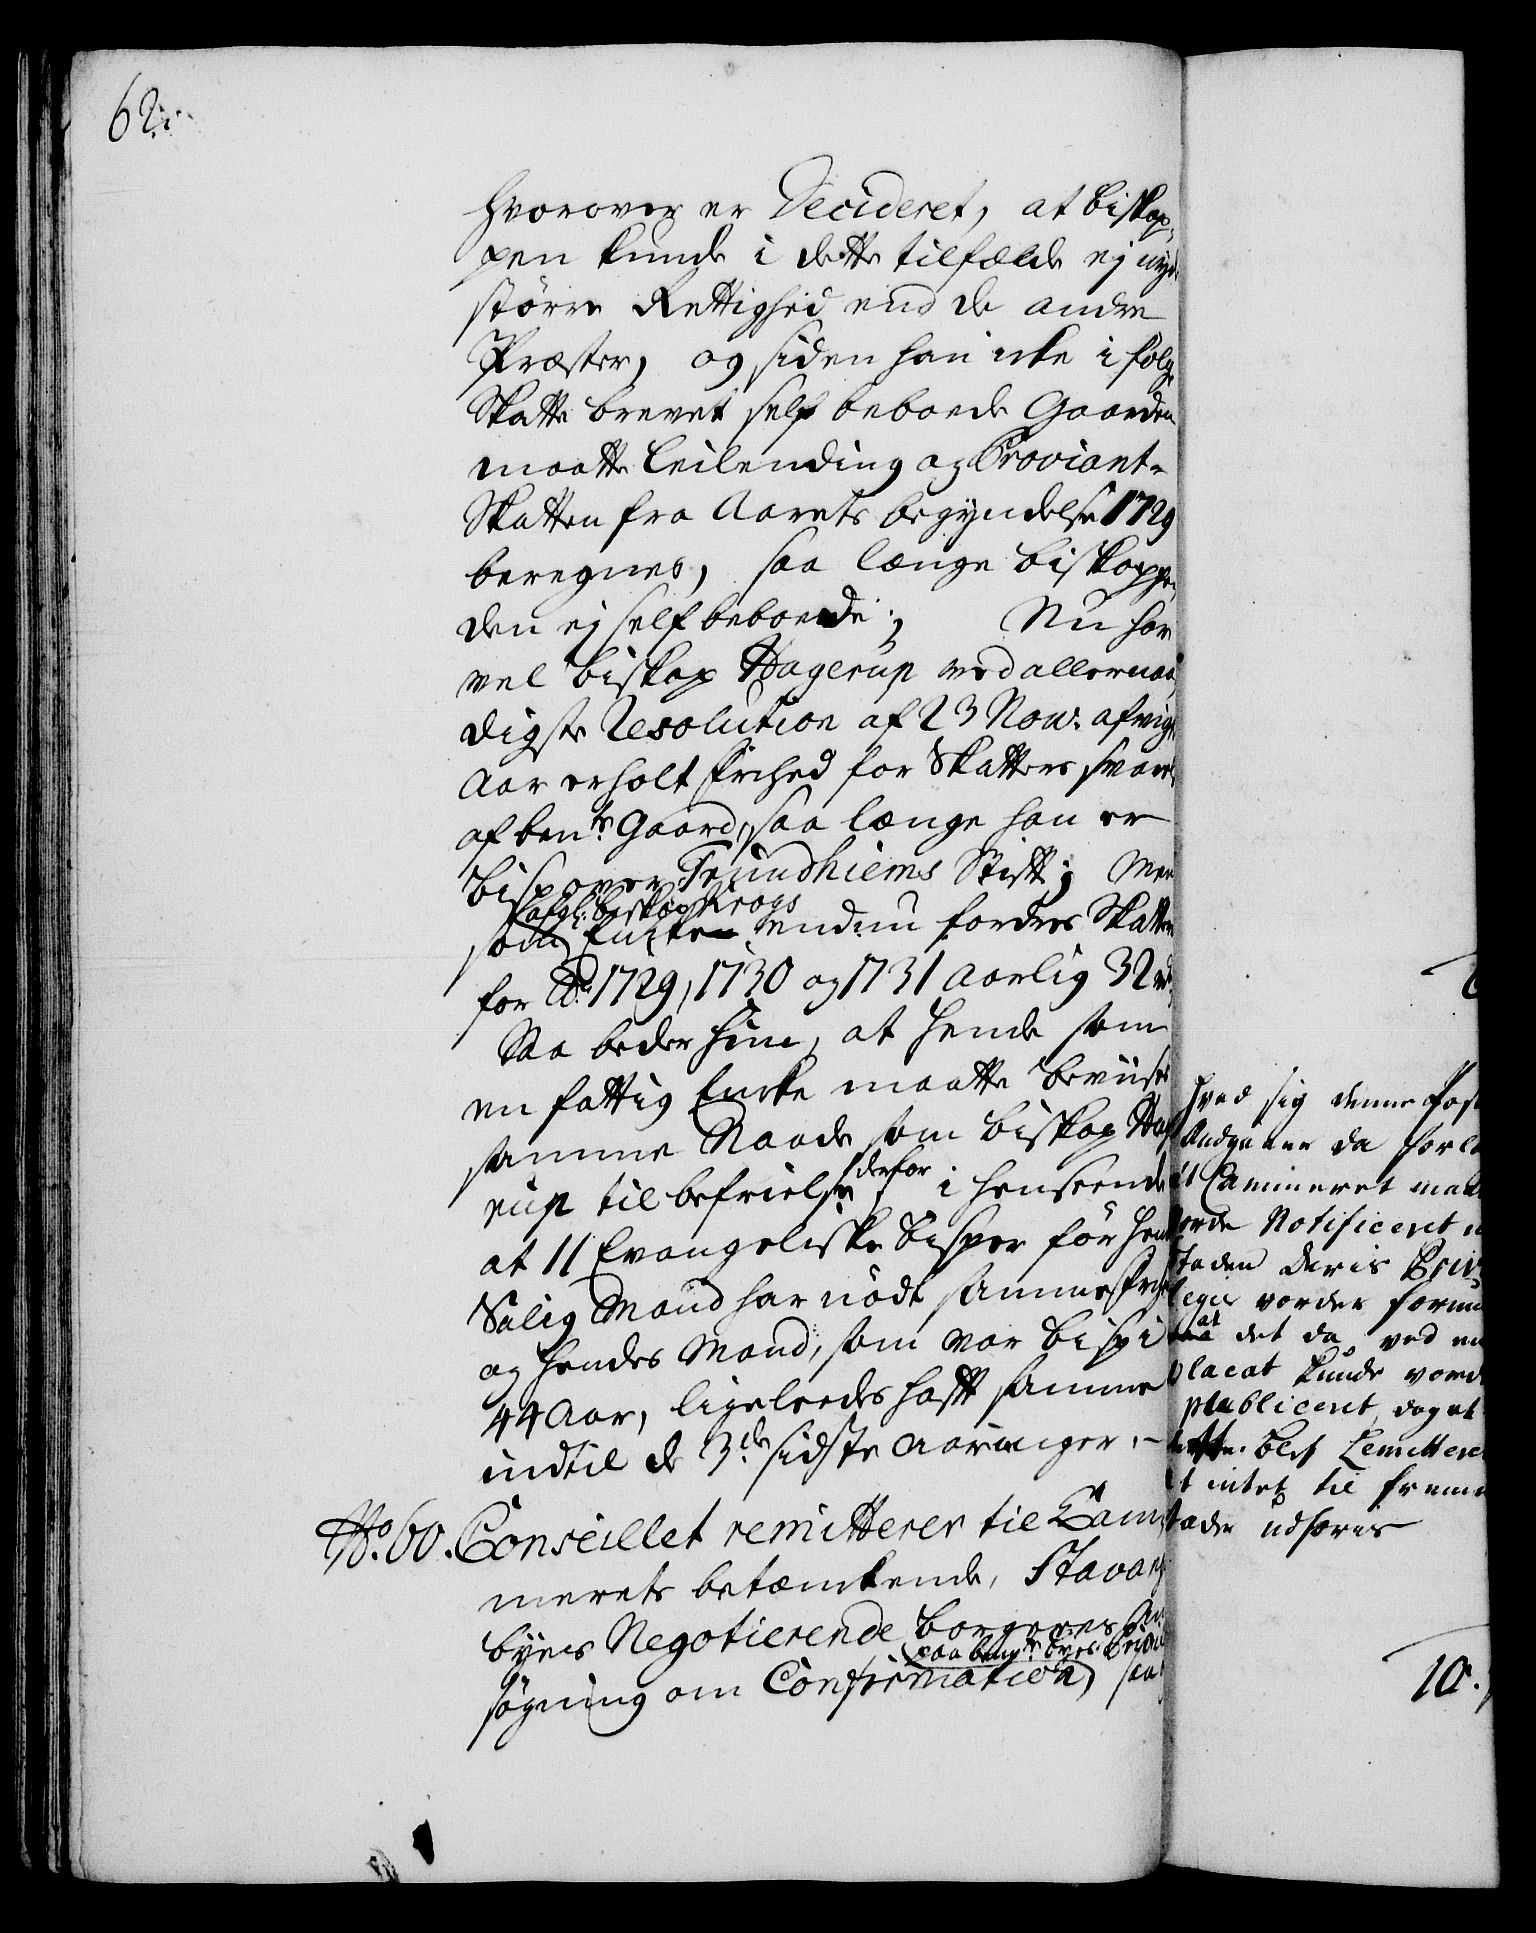 62.
hvorover er Decideret, at biskop-
pen kunde i dette tilfælde ej nyde
större Rettighed end de andre
Præster, og siden han icke i følge
Skatte brevet self beboede Gaarden
maatte Leilending og Proviant-
Skatten fra Aarets begyndelse 1729
beregnes, saa længe biskoppen
den ej self beboede; Nu har
vel biskop Hagerup ved allernaa-
digste Resolution af 23 Nov: afvigte
Aar erholt frihed for Skatters svarelse
af bente Gaard, saa længe han er
bisp over Trundhiems Stift; Men
Sal: biskop Krogs
som Encke endnu fordres Skatten
for Ao 1729, 1730 og 1731 aarlig 32 rd.
Saa beder hun, at hende som
en fattig Encke maatte beviises
samme Naade som biskop Hag-
erup til befrielse derfor i henseende
at 11 Evangeliske bisper för hendes
Salig Mand har nödt samme frihed
og hendes Mand, som var bisp i
44 Aar, ligeleedes haft samme
indtil de 3de sidste Aaringer.-
No. 60. Conseillet remitterer til Cam-
merets betænkende, Stavanger
byes Negotierende borgeres An-
paa bemte byes Privi
søgning om Confirmation, saa
hvad sig denne
Andgaaer da
Camineret
orde Notificeret
staden deris
vorder
at det da ved en
placat kunde vorde
publiceret, dog at
dette blef Remitteret
intet til fremmede
stæder udføres
10.